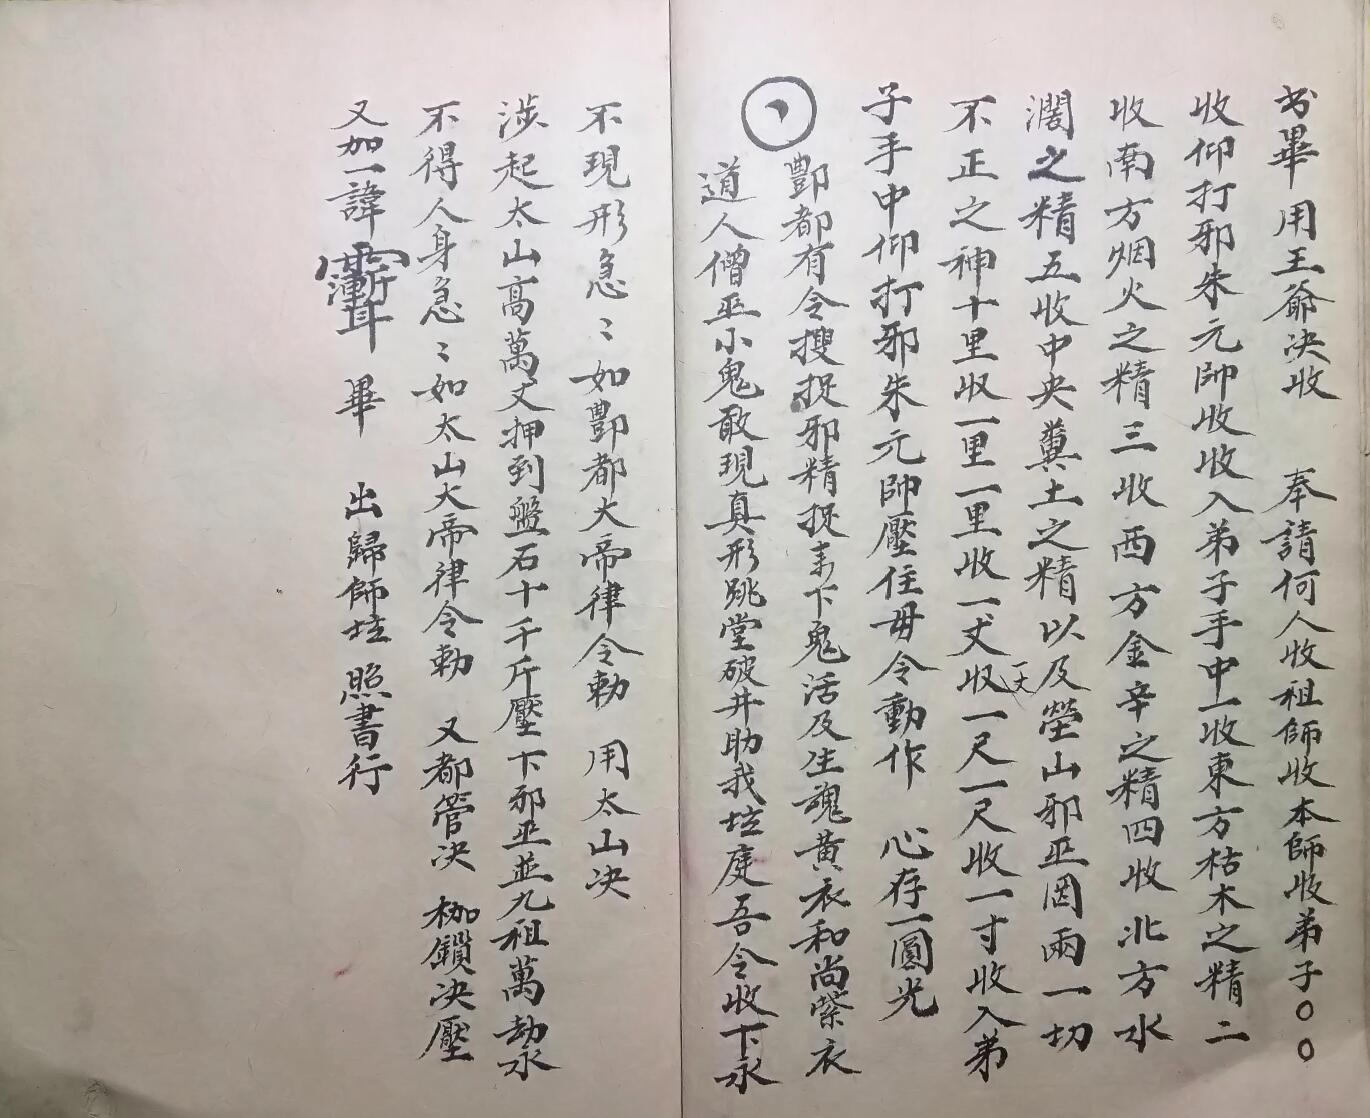 书畢 用王爺决收 奉請何人收祖師收本師收弟子〇〇
收仰打邪朱元帥收收入弟子手中一收東方枯木之精二
收南方烟火之精三收西方金辛之精四收北方水
濶之精五收中央糞土之精以及瑩山邪巫罔兩一切
不正之神十里收一里一里收一丈收一尺一尺收一寸收入弟
一丈
子手中仰打邪朱元帥壓住毋令動作 心存一圓光
酆都有令搜捉邪精捉來下鬼活及生魂黄衣和尚紫衣
道人僧巫小鬼敢現真形跳堂破井助我坛庭吾令收下永
不現形急〻如酆都大帝律令勅 用太山决
涉起太山高萬丈押到盤石十千斤壓下邪巫並九祖萬劫永
不得人身急〻如太山大帝律令勅 又都管决 枷鎖决壓
又加一諱 畢 出歸師坛 照書行